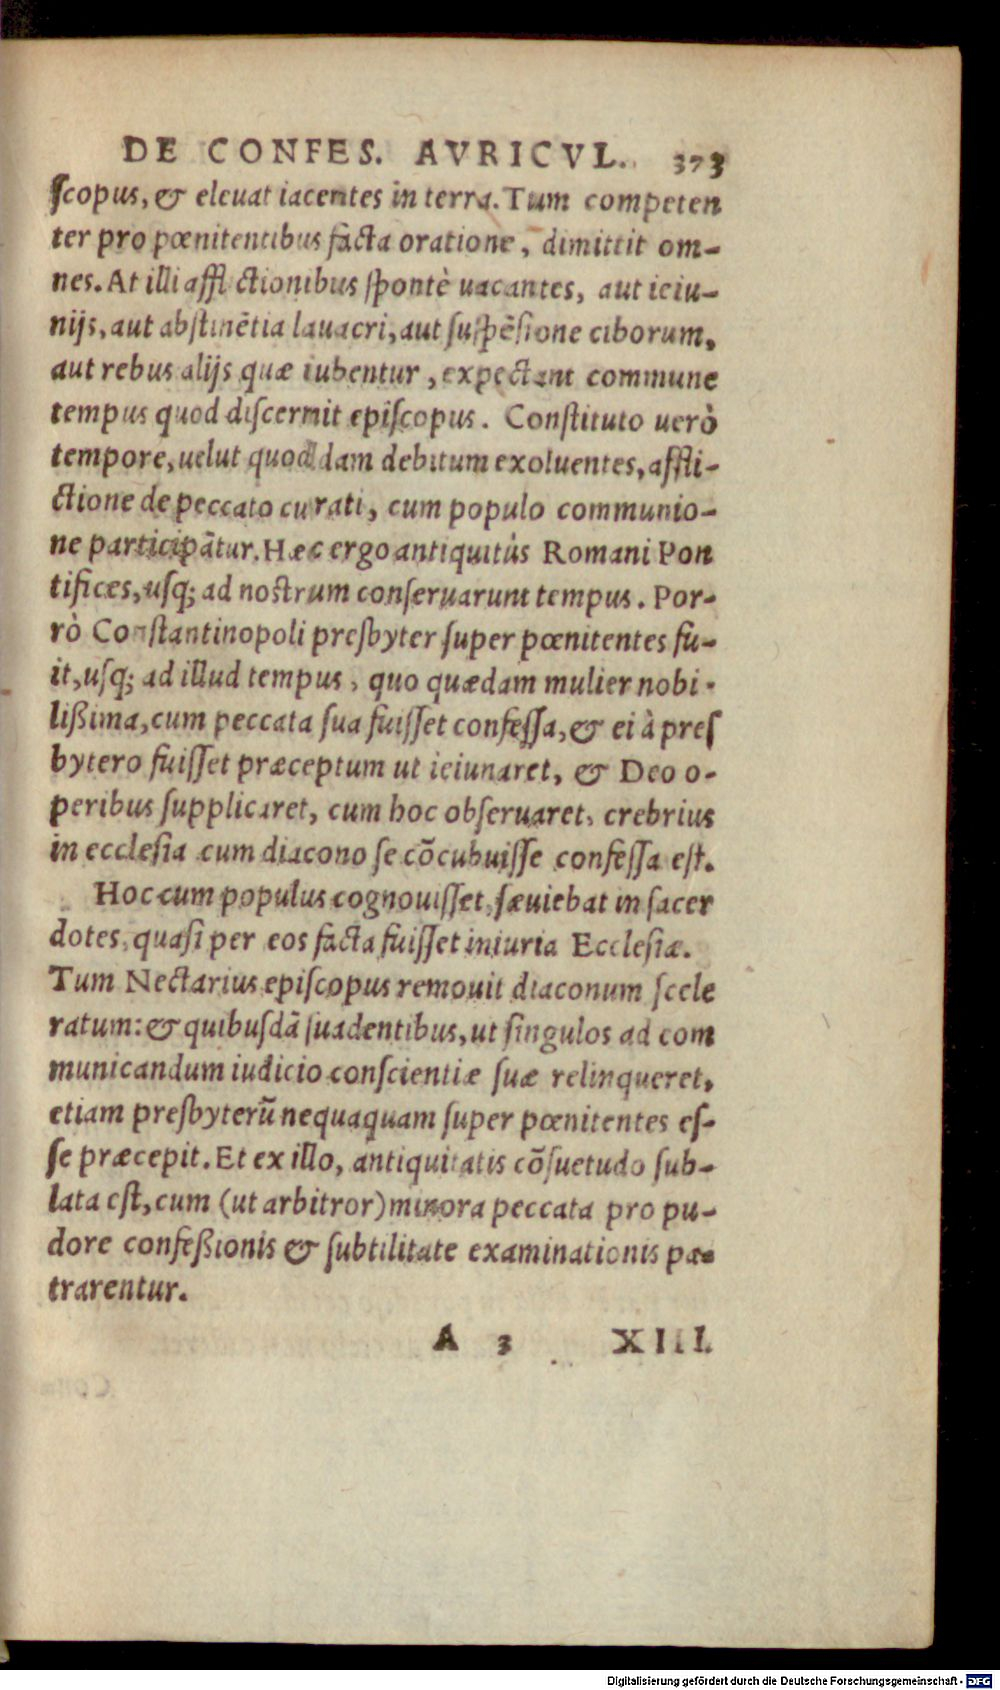 DE CONFES. AVRICVL. 373
ſcopus, & eleuat iacentes in terra. Tum competen
ter pro pœnitentibus facta oratione, dimittit om-
nes. At illi affli ctionibus ſpontè uacantes, aut ieiu-
nijs, aut abſtinẽtia lauacri, aut ſuſpẽſione ciborum,
aut rebus alijs quæ iubentur, expectant commune
tempus quod diſcernit epiſcopus. Conſtituto uerò
tempore, uelut quoddam debitum exoluentes, affli-
ctione de peccato curati, cum populo communio-
ne participãtur. Hæc ergo antiquitùs Romani Pon
tifices, uſq; ad noſtrum conſeruarunt tempus. Por-
rò Conſtantinopoli presbyter ſuper pœnitentes fu-
it, uſq; ad illud tempus, quo quædam mulier nobi-
lißima, cum peccata ſua fuiſſet confeſſa, & ei à preſ
bytero fuiſſet præceptum ut ieiunaret, & Deo o-
peribus ſupplicaret, cum hoc obſeruaret, crebrius
in eccleſia cum diacono ſe cõcubuiſſe confeſſa eſt.
Hoc cum populus cognouiſſet, ſæuiebat in ſacer
dotes, quaſi per eos facta fuiſſet iniuria Eccleſiæ.
Tum Nectarius epiſcopus remouit diaconum ſcele
ratum: & quibuſdã ſuadentibus, ut ſingulos ad com
municandum iudicio conſcientiæ ſuæ relinqueret,
etiam presbyterũ nequaquam ſuper pœnitentes eſ-
ſe præcepit. Et ex illo, antiquitatis cõſuetudo ſub-
lata eſt, cum (ut arbitror) minora peccata pro pu-
dore confeßionis & ſubtilitate examinationis pæ-
trarentur.
A 3 XIII.
Digitalisierung gefördert durch die Deutsche Forschungsgemeinschaft - DFG